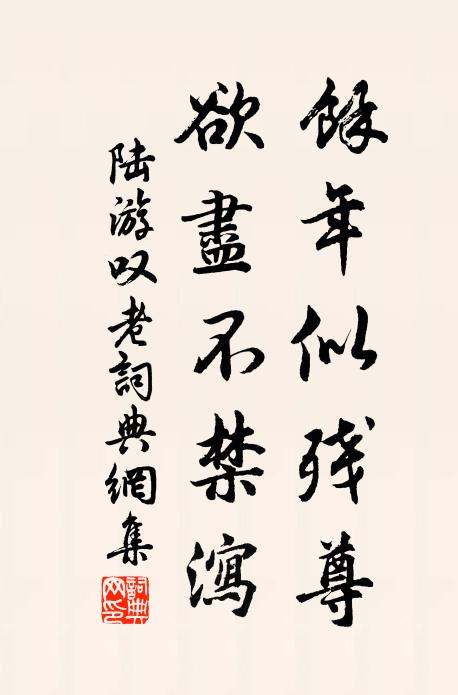 餘年似残尊
欲盡不禁瀉
陆游叹老詞典網集
詞典网印